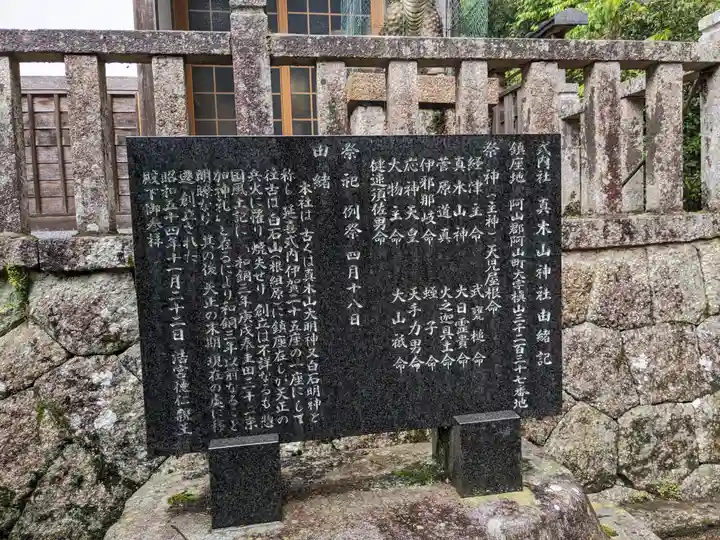 式内社 真木山神社由緒記
鎮座地 阿山郡阿山町大字槙山三千二百三十七番地
祭神(主神) 天児屋根命
経津主命 武甕槌命
真木山神 大日霊貴命
菅原道真 火之迦具土命
伊邪那岐命 蛭子命
応神天皇 天手力男命
大物主命 大山祇命
健速須佐男命
祭祀 例祭 四月十八日
由緒
本社は、古くは真木山大明神又白石明神と
称し、延喜式内伊賀二十五座の一座にして
往古は白石山(根組原)に鎮座在しが天正の
兵火に罹り焼失せり、創立は不詳なるも惣
国風土記に、和銅三年庚戌奉圭田二十一束
加神礼」と在るにより和銅三年以前なること
明瞭なり、其の後、天正の末期、現在の處に移
遷、創立された
昭和五十四年十一月二十二日 浩宮徳仁親王
殿下御参拝